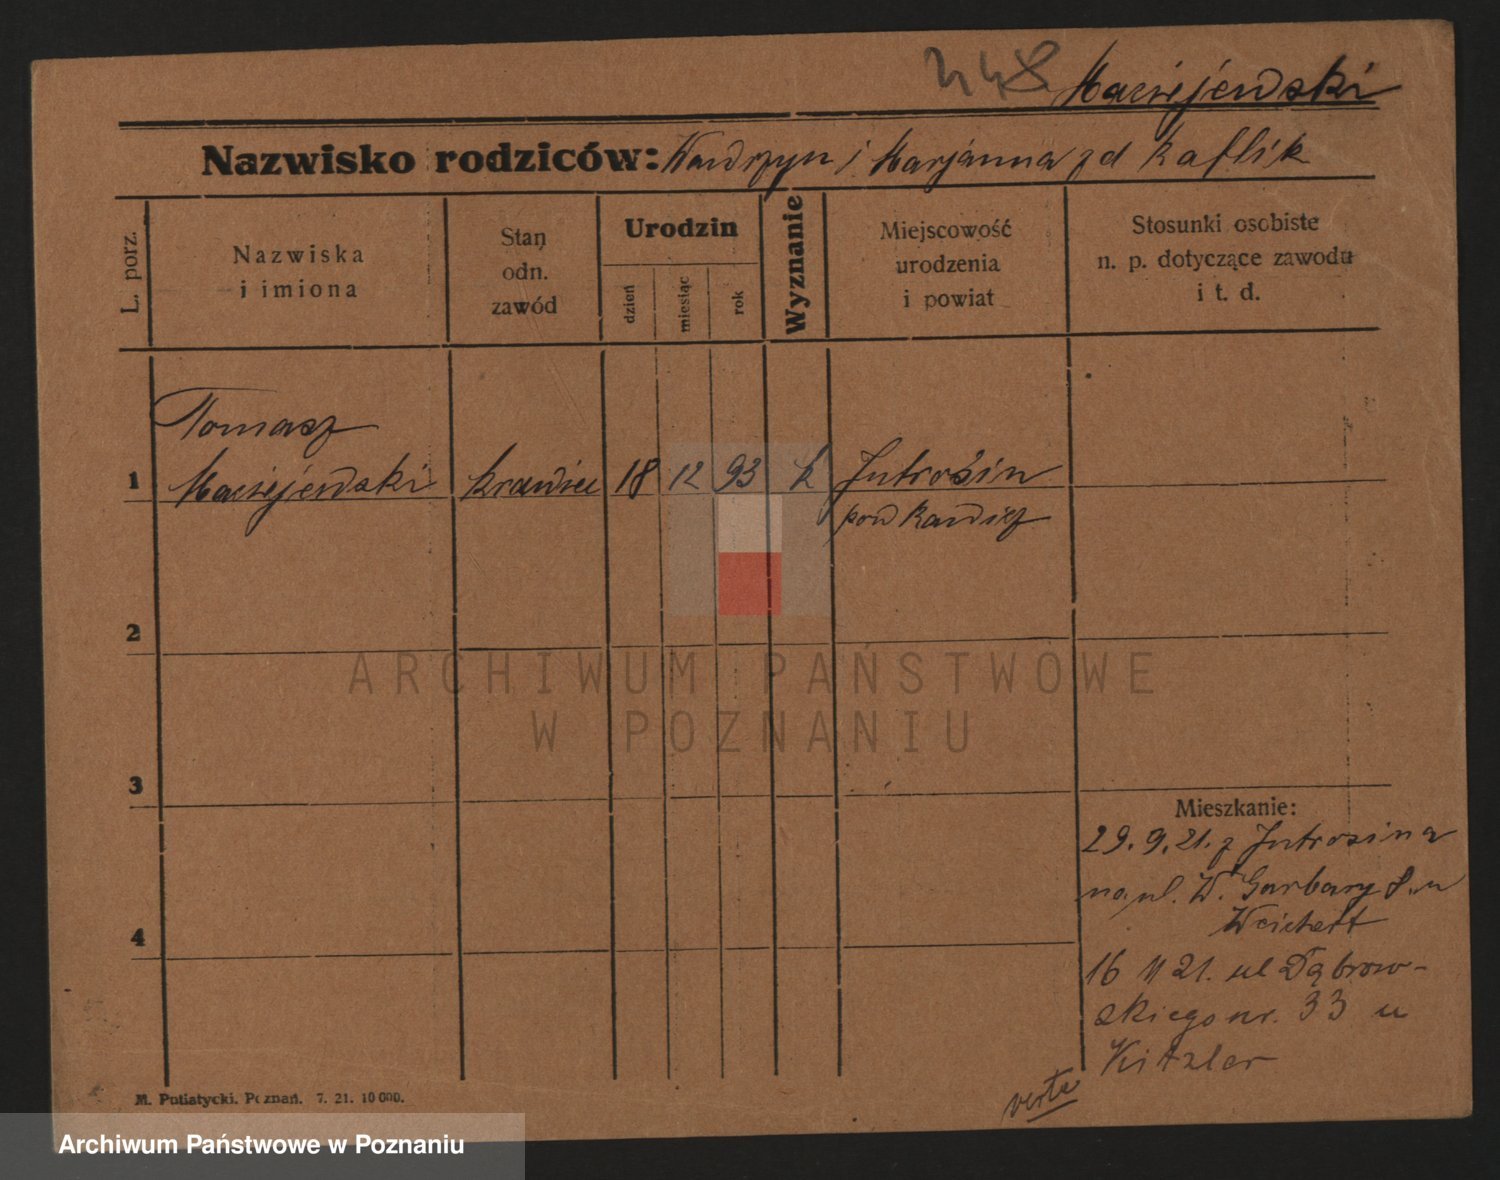 248 Maciejewski
Nazwisko rodziców: Wawrzyn i Marjanna zd Kaflik
L. porz.
Nazwiska
i imiona
Stan
odn.
zawód
Urodzin
dzień
miesiąc
rok
Wyznanie
Miejscowość
urodzenia
i powiat
Stosunki osobiste
n. p. dotyczące zawodu
i t. d.
Tomasz
1 Maciejewski krawiec 18 12 93 k Jutrosin
pow Rawicz
2
3
Mieszkanie:
29.9.21. z Jutrosina
na ul. W. Garbary 8. u
Weichert
4
16 11 21. ul Dąbrow-
skiego nr. 33 u
Kitzler
verte
M. Putiatycki. Poznań. 7. 21. 10 000.
ARCHIWUM PAŃSTWOWE
W POZNANIU
Archiwum Państwowe w Poznaniu